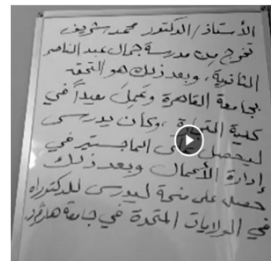 الأستاذ/الدكتور محمد شريف
تخرج من مدرسة جمال عبد الناصر
الثانوية، وبعد ذلك هو التحقت
بجامعة القاهرة وعمل معيداً في
كلية التجارة، وكان يدرس
ليحصل على الماجستير في
إدارة الأعمال وبعد ذلك
حصل على منحة ليدرس للدكتوراه
في الولايات المتحدة في جامعة هارفرد